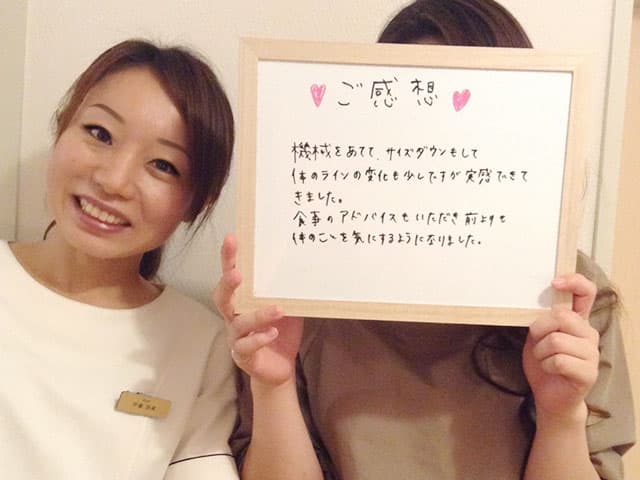 ご感想
機械をあてて、サイズダウンもして
体のラインの変化も少しですが実感できて
きました。
食事のアドバイスもいただき前よりも
体のことを気にするようになりました。